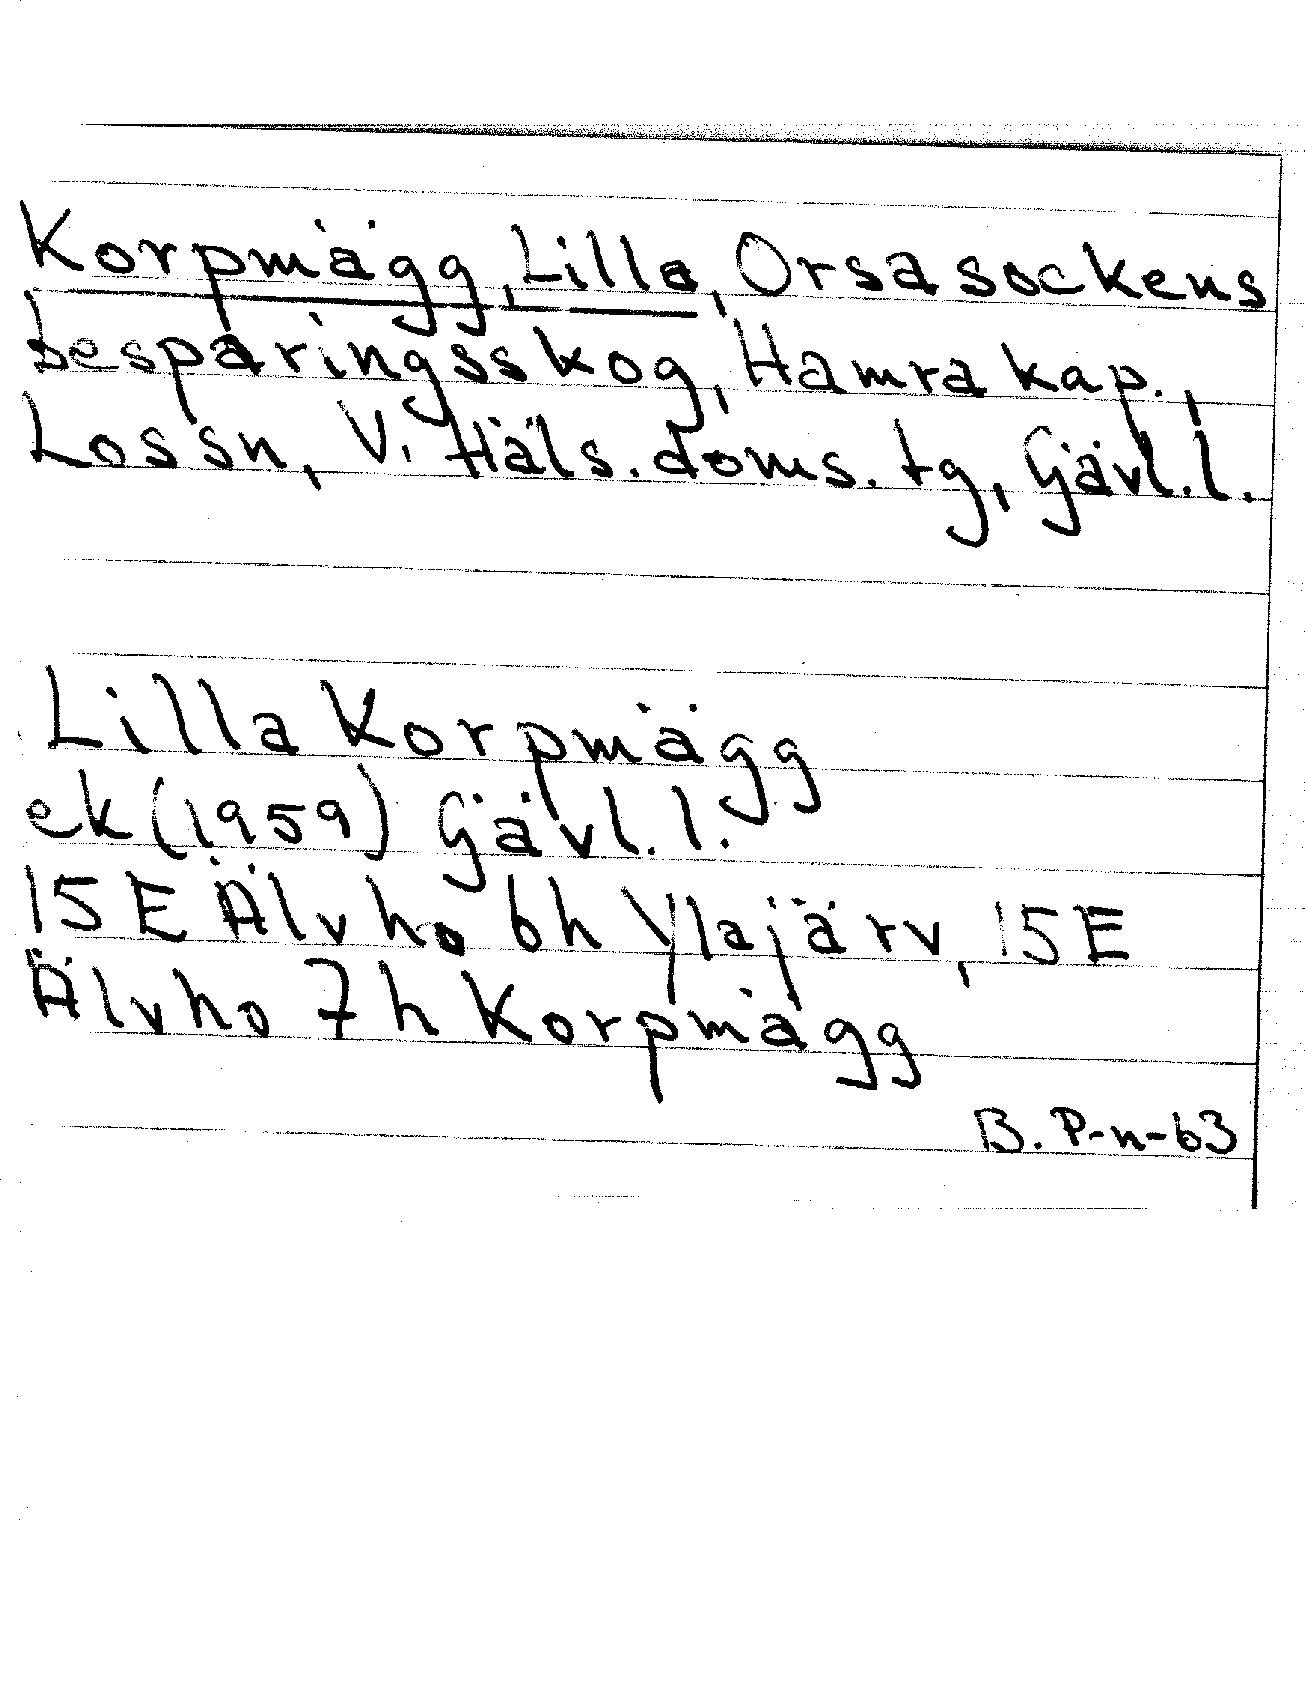 Korpmägg, Lilla, Orsa sockens
besparingsskog, Hamra kap.,
Lossn, V. Häls. doms. tg, Gävl. l.
Lilla Korpmägg
ek (1959) Gävl. l.
15 E Älvho 6h Ylajärv, 15 E
Älvho 7h Korpmägg
B. P-n-63